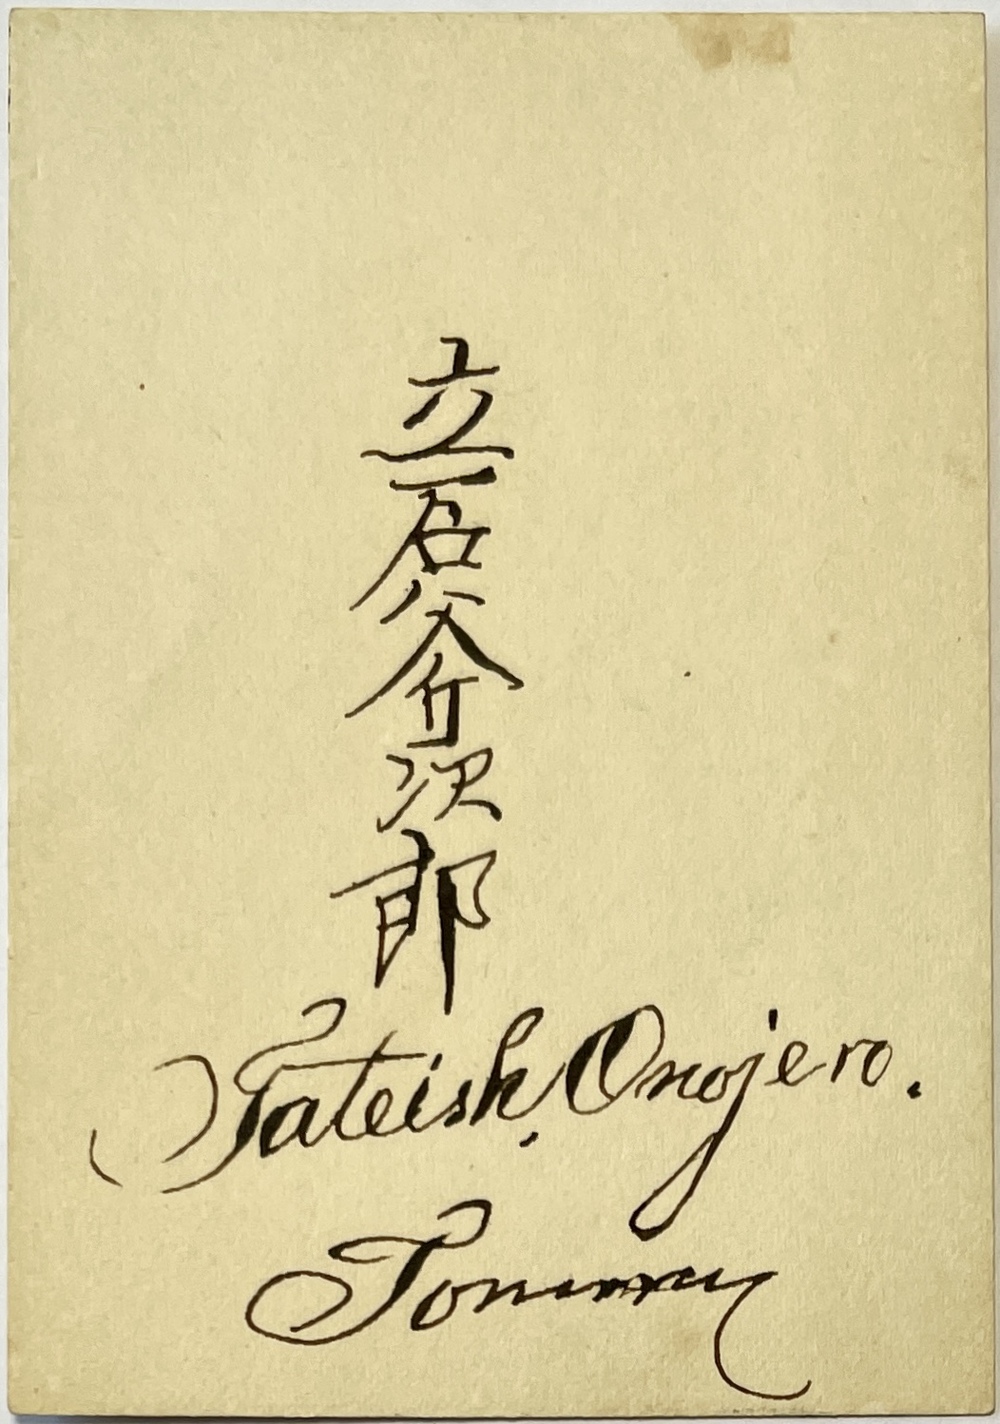 立石斧次郎
Tateish. Onojero.
Tommy